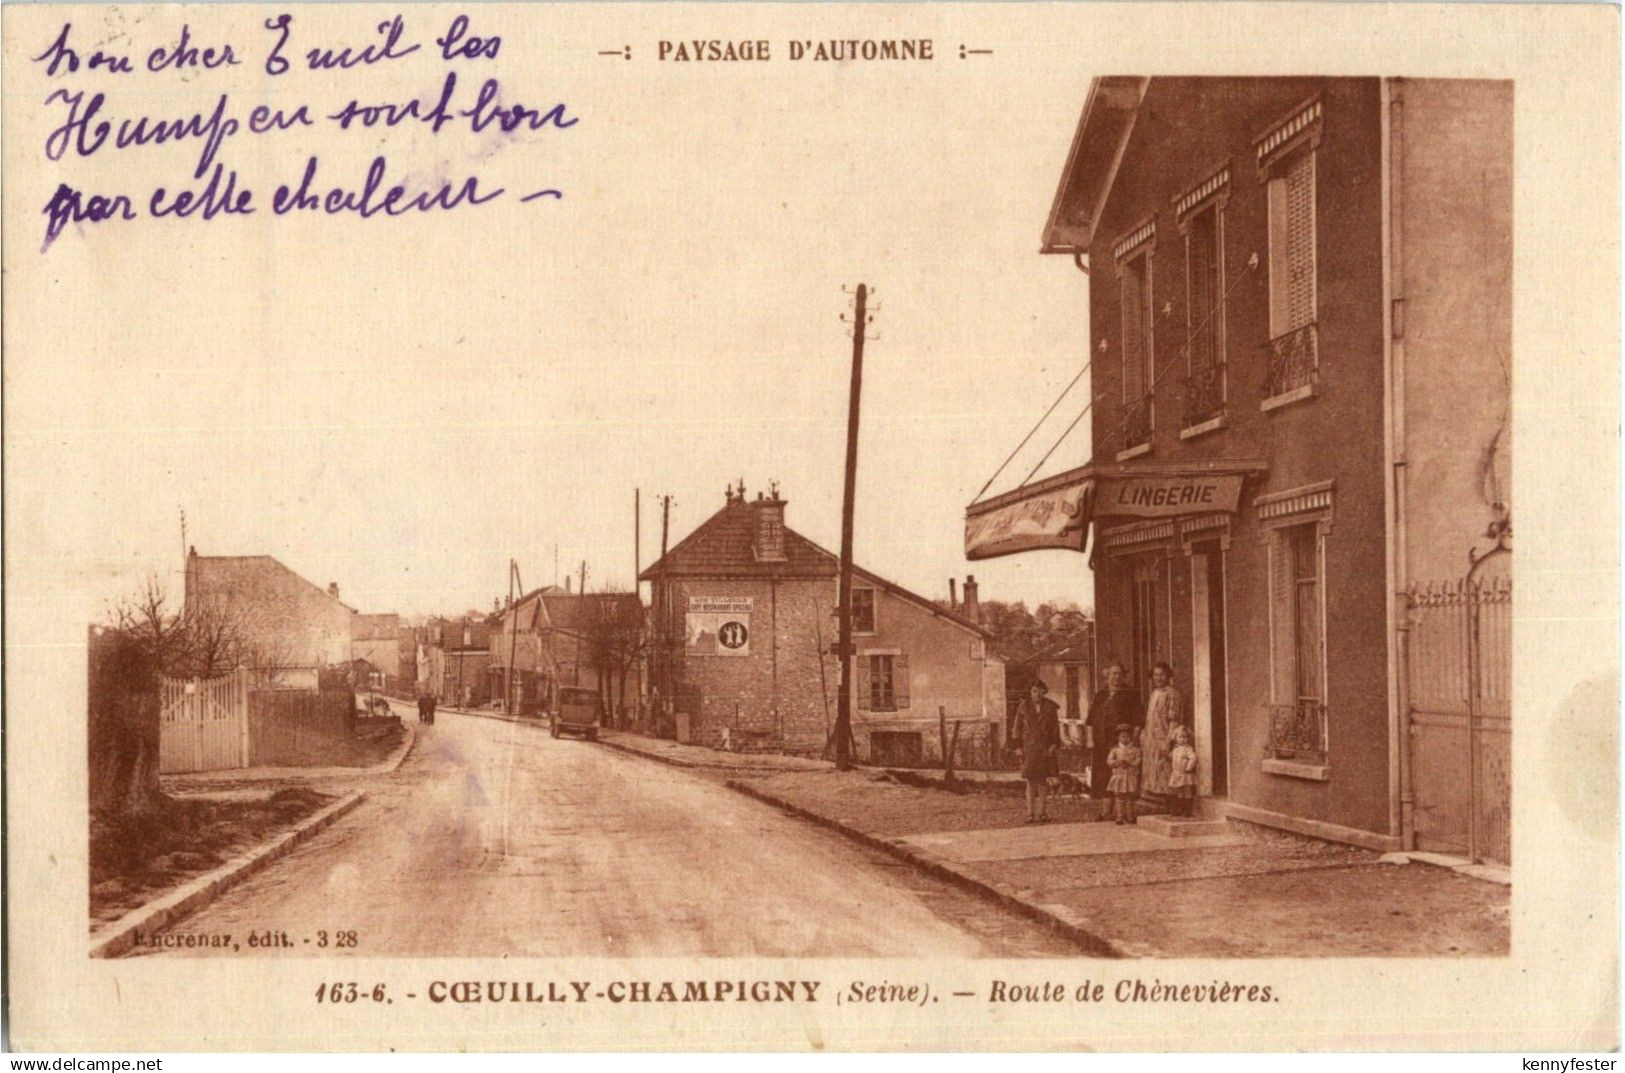 mon cher Emil les
Humpen sont bon
par cette chaleur —
—: PAYSAGE D'AUTOMNE :—
LINGERIE
CAFE RESTAURANT EPICERIE
Encrenaz, édit. - 3 28
163-6. - CŒUILLY-CHAMPIGNY (Seine). — Route de Chènevières.
www.delcampe.net
kennyfester